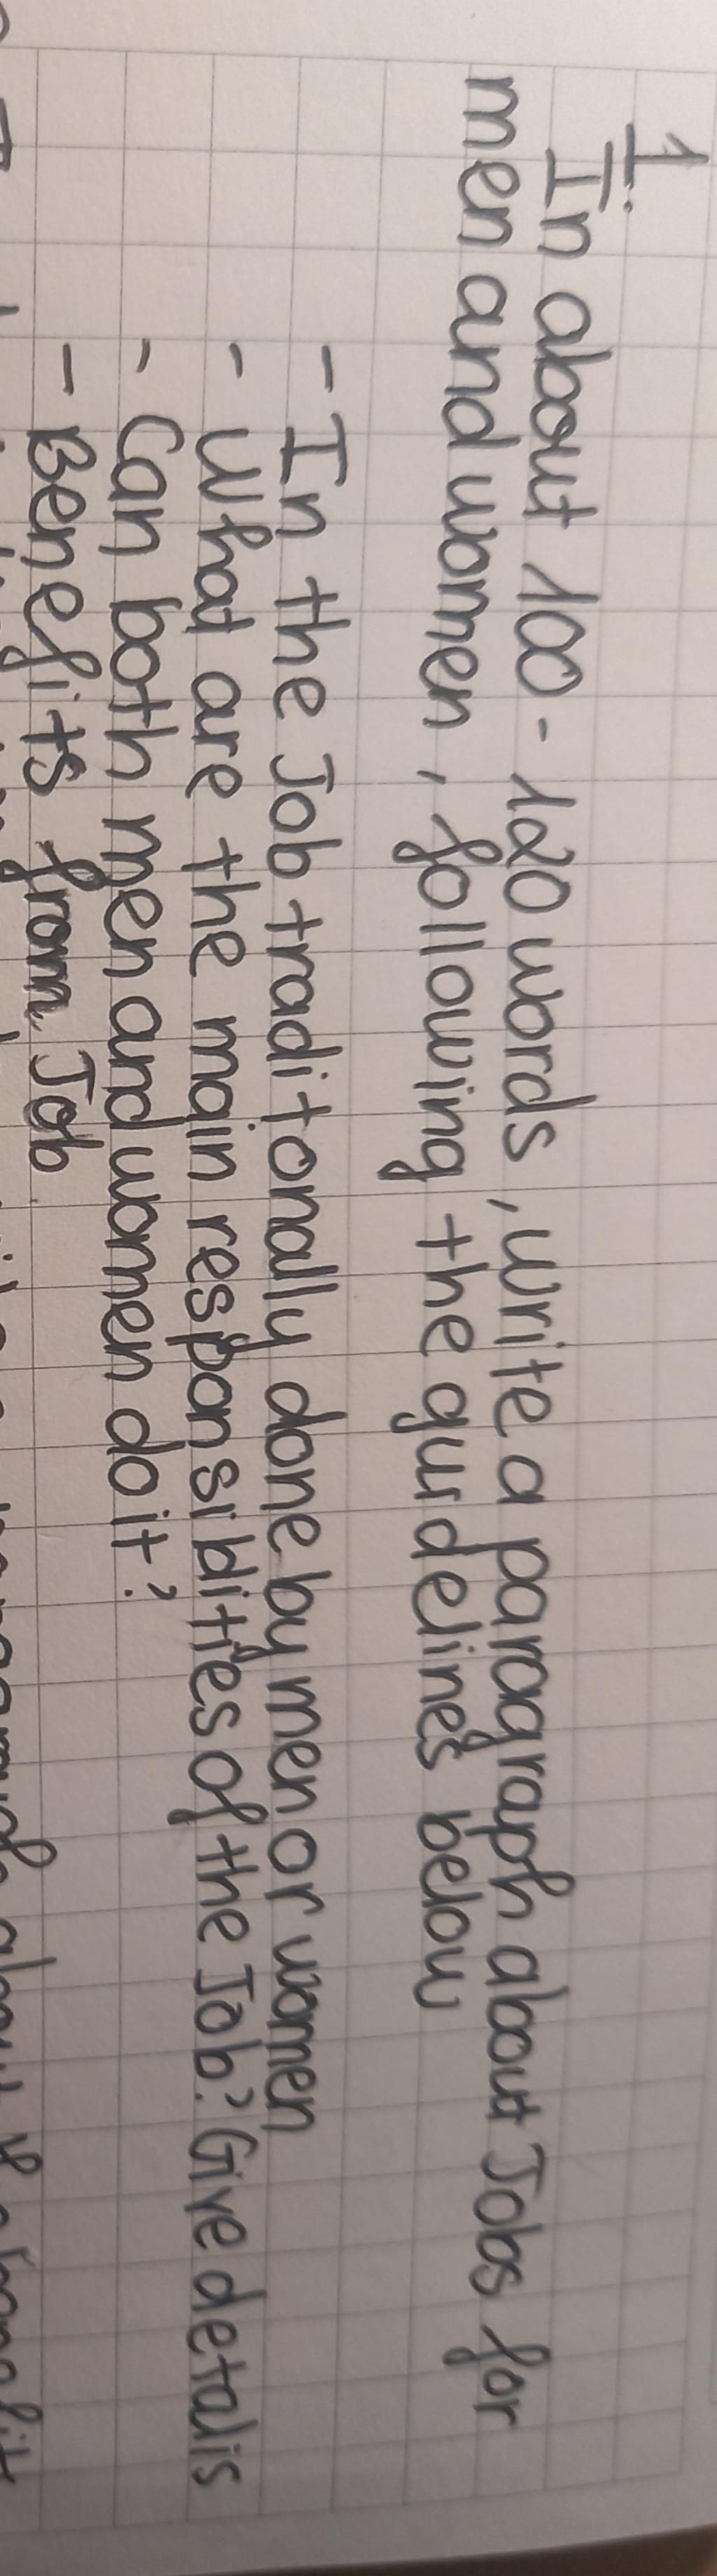 1.
In about 100-120 words, write a paragraph about Jobs for
men and women, following the guidelines below
- In the Job traditonally done by men or women
- What are the main responsibilities of the Job? Give detalis
- Can both men and women do it?
- Benefits from Job